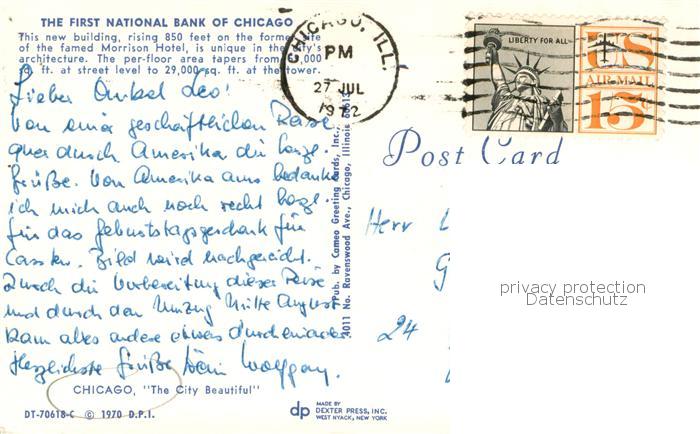 THE FIRST NATIONAL BANK OF CHICAGO
This new building, rising 850 feet on the former site
of the famed Morrison Hotel, is unique in the city's
architecture. The per-floor area tapers from ,000
sq. ft. at street level to 29,000 sq. ft. at the tower.
CHICAGO, ILL.
PM
27 JUL
1972
LIBERTY FOR ALL
US
AIR MAIL
15
Post Card
Lieber Onkel Leo!
Von einer geschäftlichen Reise
quer durch Amerika die herzl.
Grüße. Von Amerika aus bedanke
ich mich auch noch recht herzl.
für das Geburtstagsgeschenk für
Carsten. Bild wird nachgereicht.
Durch die Vorbereitung dieser Reise
und durch den Umzug Mitte August
kam alles andere etwas durcheinander
Herzlichste Grüße Dein Wolfgang.
Pub. by Cameo Greeting Cards, Inc.,
4011 No. Ravenswood Ave., Chicago, Illinois 60613
Herr
24
privacy protection
Datenschutz
CHICAGO, "The City Beautiful"
DT-70618-C © 1970 D.P.I.
dp MADE BY
DEXTER PRESS, INC.
WEST NYACK, NEW YORK